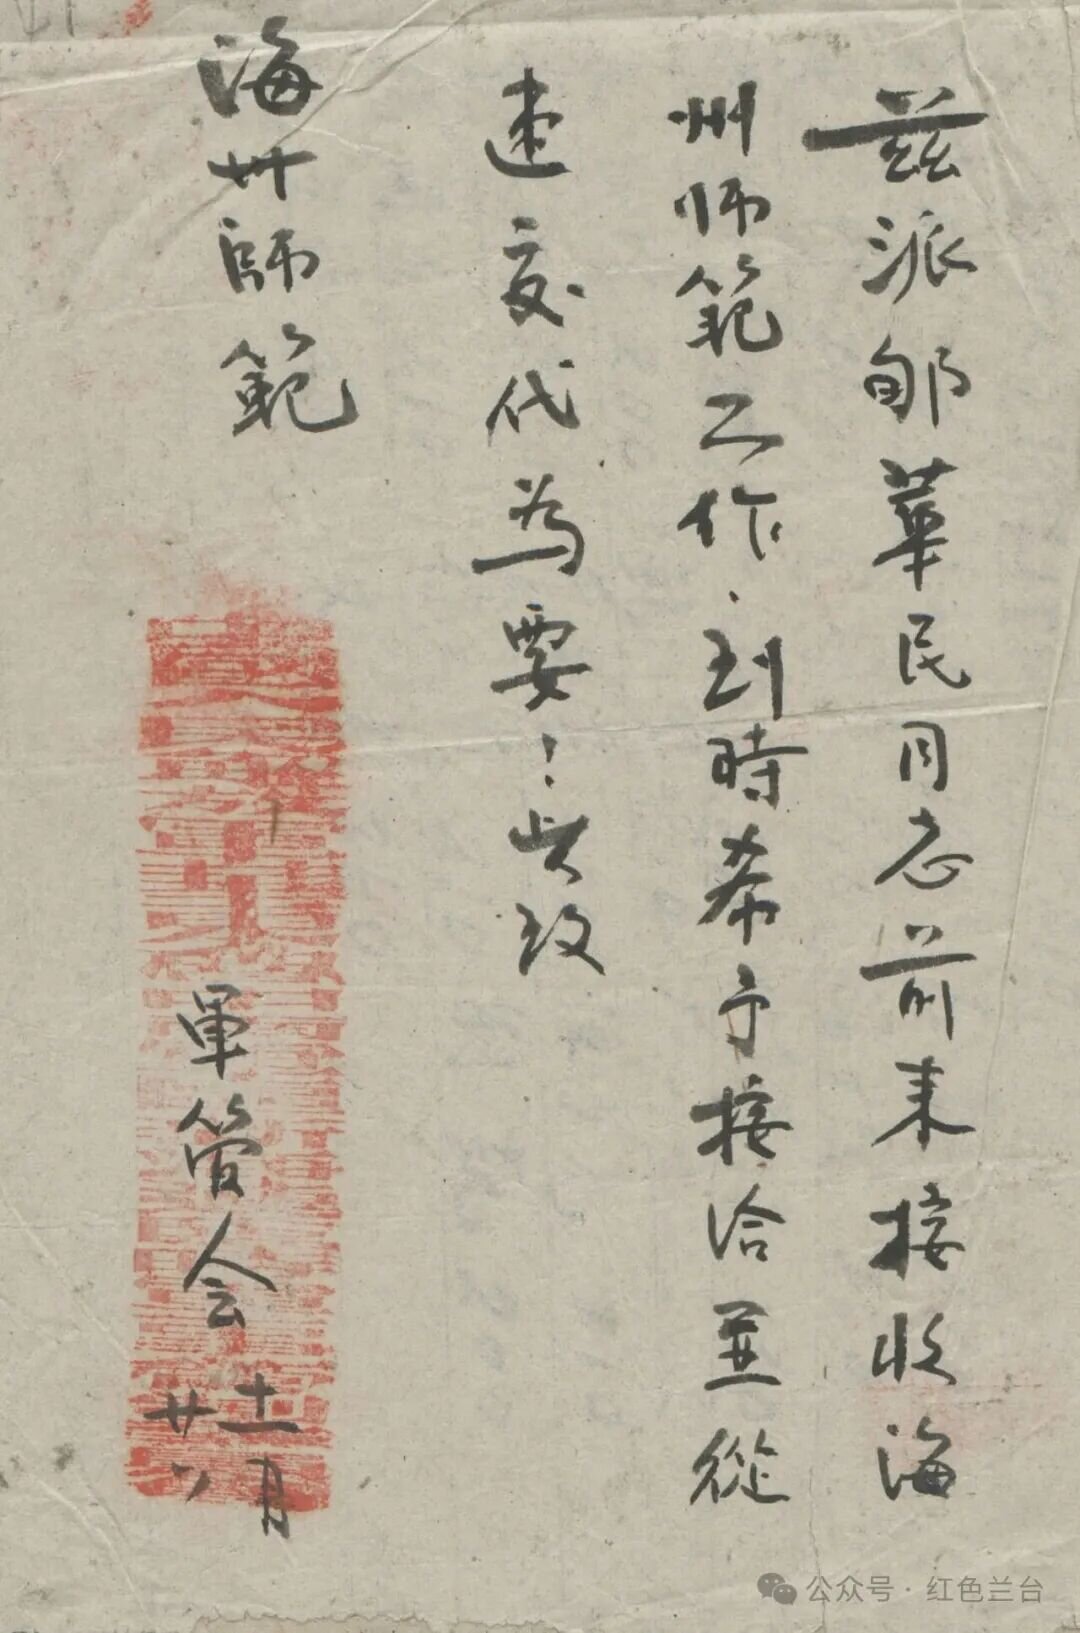 兹派郇華民同志前来接收海
州师範工作．到時希予接洽並從
速交代為要！此致
海州師範
軍管会
十一月
廿八
公众号·红色兰台